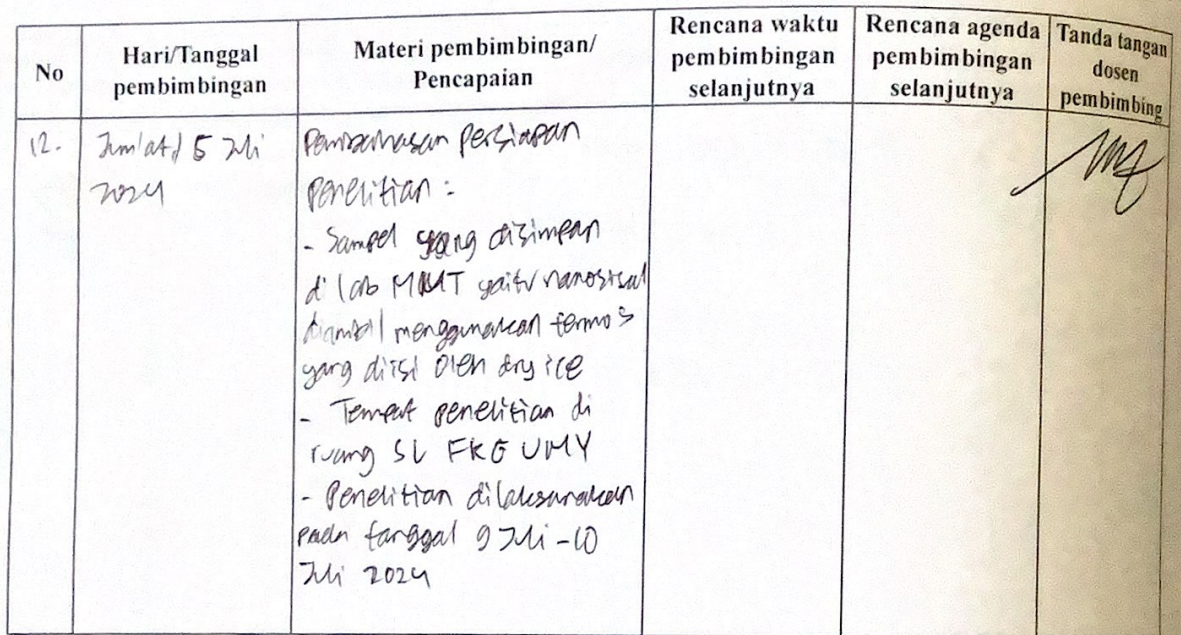 No
Hari/Tanggal
pembimbingan
Materi pembimbingan/
Pencapaian
Rencana waktu
pembimbingan
selanjutnya
Rencana agenda
pembimbingan
selanjutnya
Tanda tangan
dosen
pembimbing
12.
Jum'at, 5 Juli
2024
Pembahasan persiapan
penelitian :
- Sampel yang disimpan
di lab MMT yaitu nanosisal
diambil menggunakan termos
yang diisi oleh dry ice
- Tempat penelitian di
ruang SL FKG UMY
- Penelitian dilaksanakan
pada tanggal 9 Juli - 10
Juli 2024